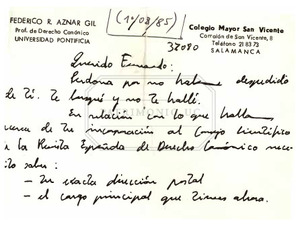 FEDERICO R. AZNAR GIL
Prof. de Derecho Canónico
UNIVERSIDAD PONTIFICIA
(1-/08/85)
Colegio Mayor San Vicente
Corralón de San Vicente, 8
Teléfono 21 83 73
SALAMANCA
37080
Querido Fernando:
Perdona por no haberme despedido
de ti. Te busqué y no te hallé.
En relación con lo que hablamos
acerca de tu incorporación al Consejo Científico
de la Revista Española de Derecho Canónico nece-
sito saber:
- tu exacta dirección postal
- el cargo principal que tienes ahora.